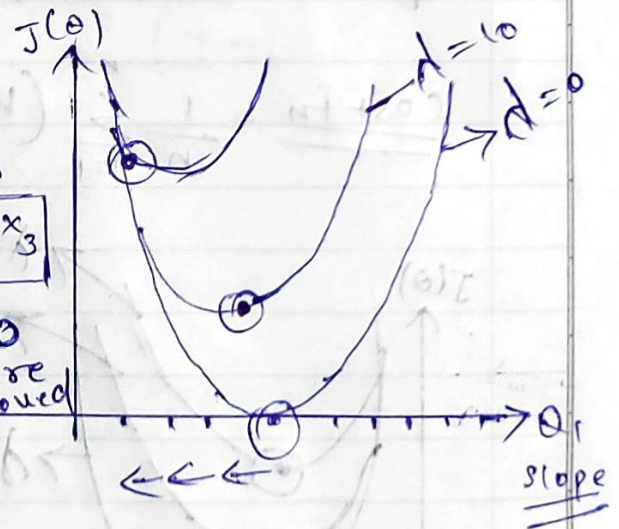 J(θ)
λ=10
λ=0
x3
0
re
oved
θ1
slope